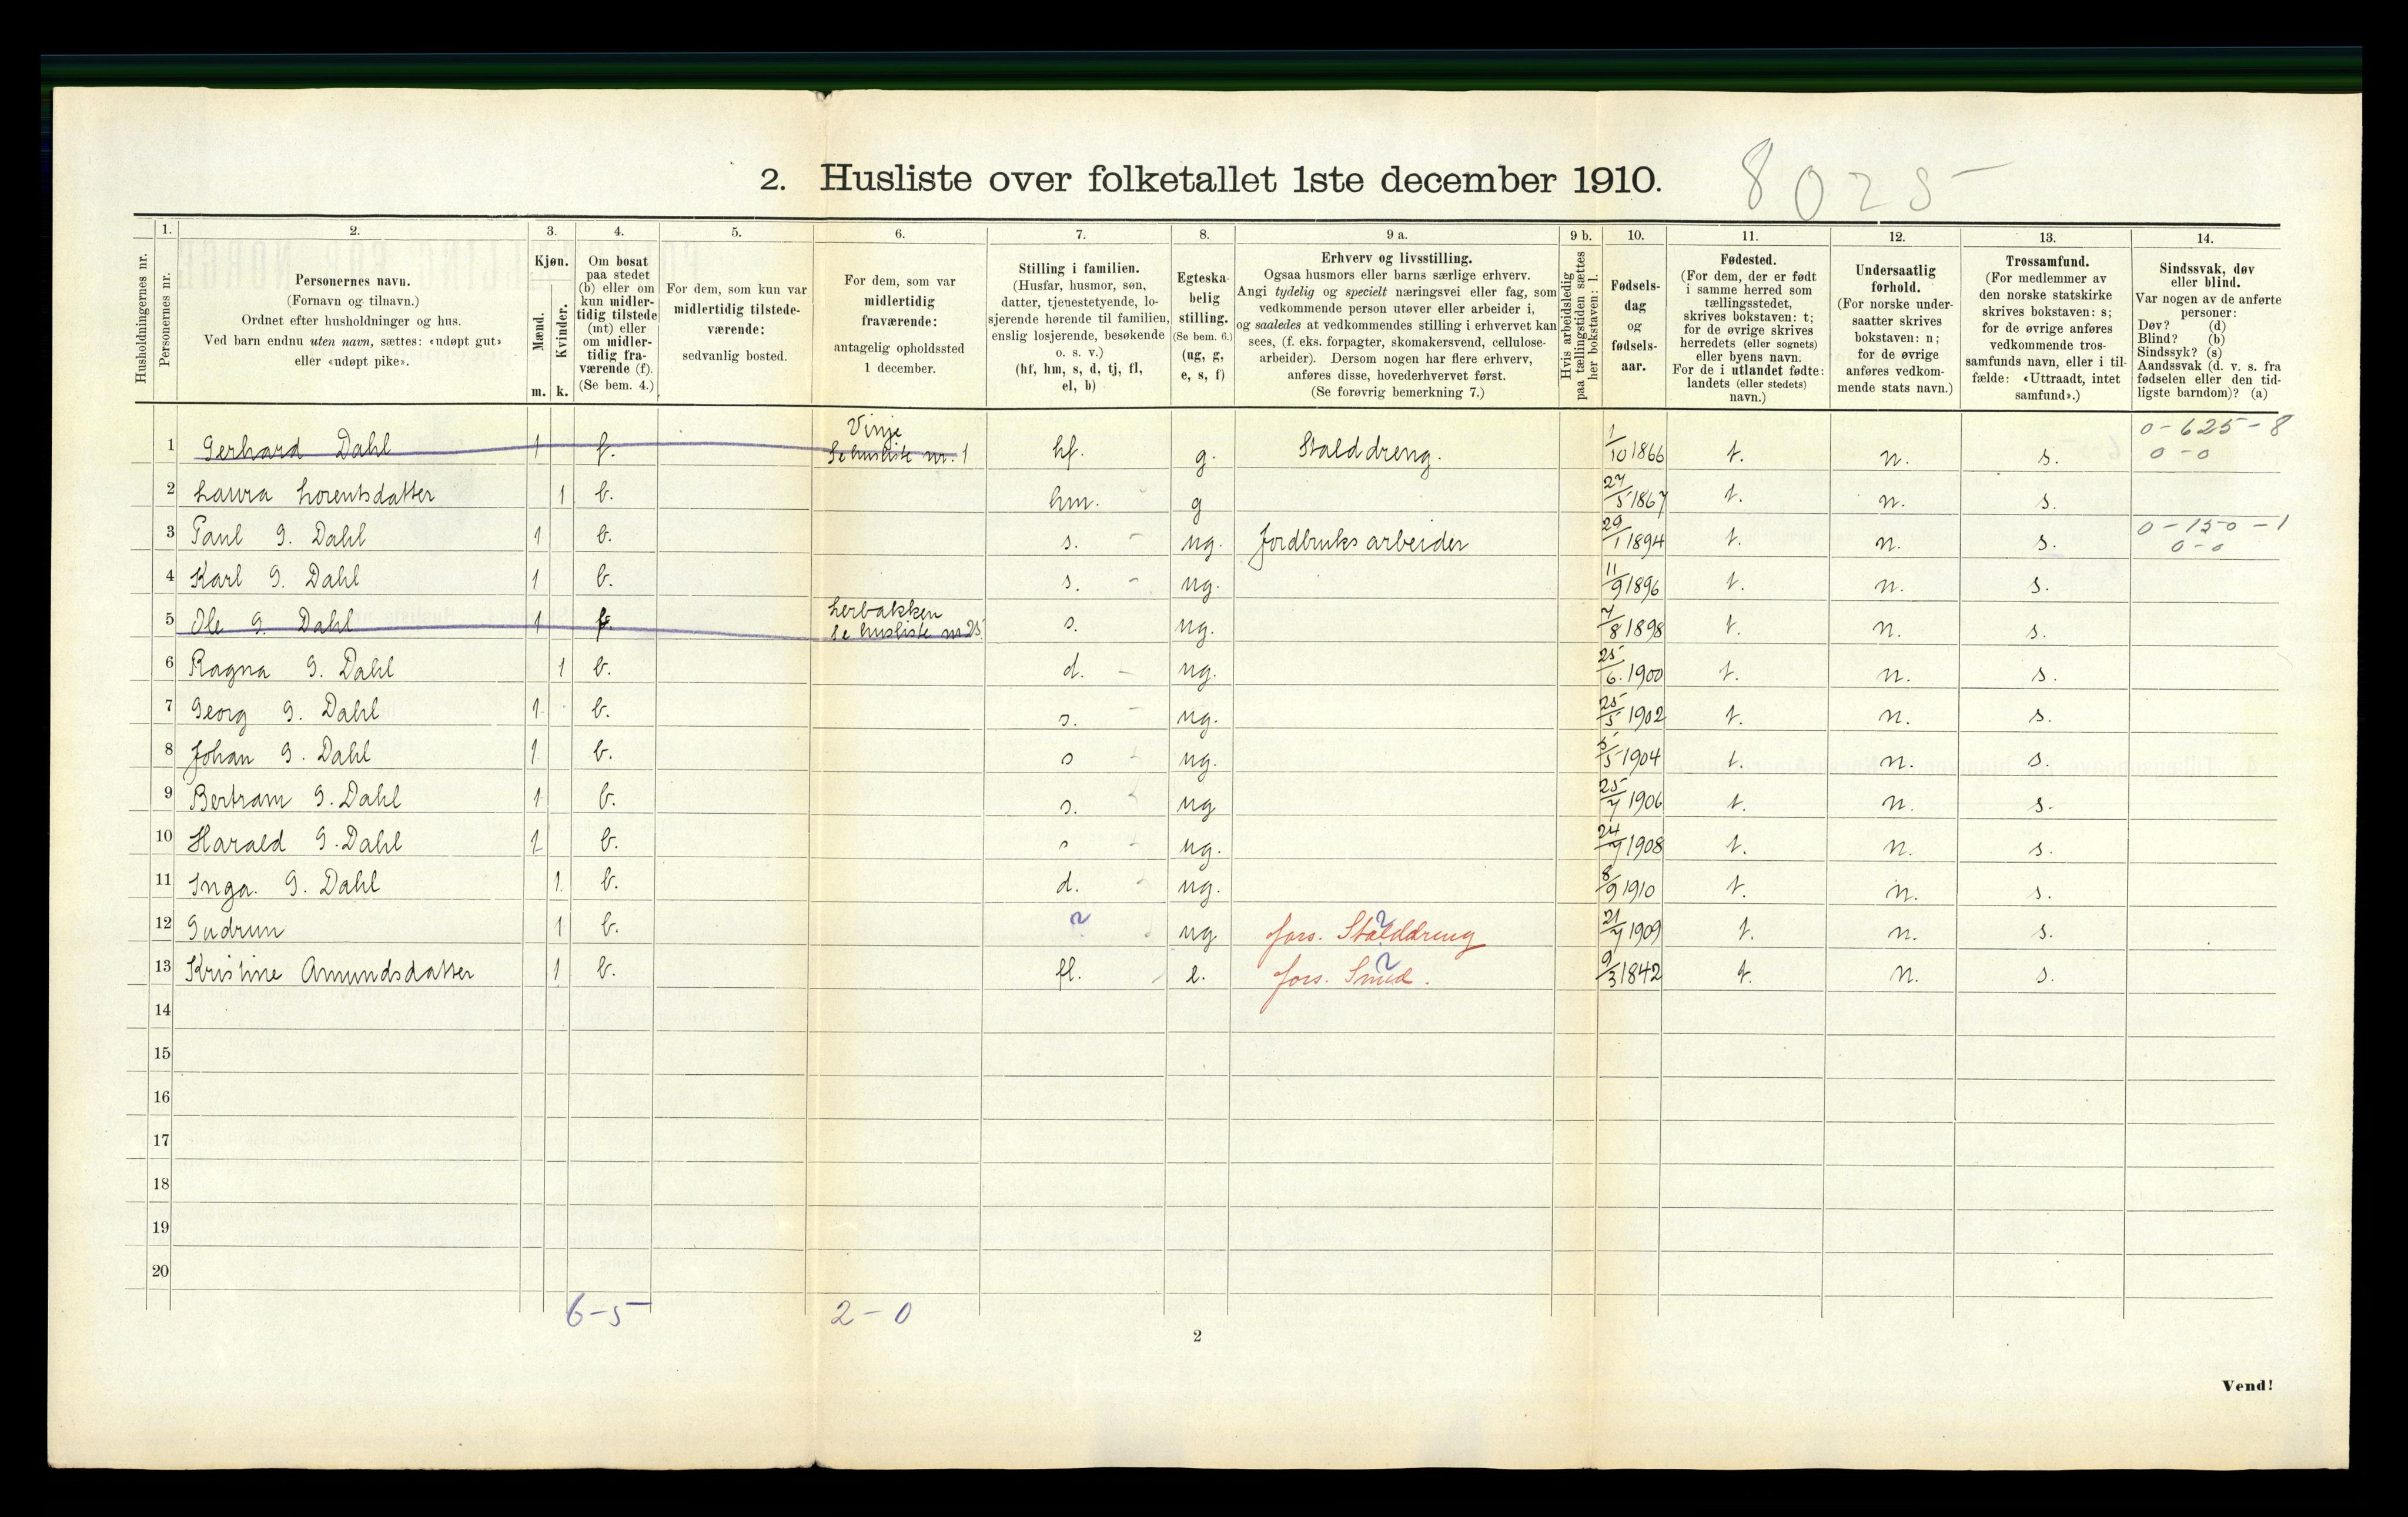 2. Husliste over folketallet 1ste december 1910. 8025
Husholdningernes nr.
1.
Personernes nr.
2.
Personernes navn.
(Fornavn og tilnavn.)
Ordnet efter husholdninger og hus.
Ved barn endnu uten navn, sættes: «udøpt gut»
eller «udøpt pike».
3.
Kjøn.
Mænd.
Kvinder.
m. k.
4.
Om bosat
paa stedet
(b) eller om
kun midler-
tidig tilstede
(mt) eller
om midler-
tidig fra-
værende (f).
(Se bem. 4.)
5.
For dem, som kun var
midlertidig tilstede-
værende:
sedvanlig bosted.
6.
For dem, som var
midlertidig
fraværende:
antagelig opholdssted
1 december.
7.
Stilling i familien.
(Husfar, husmor, søn,
datter, tjenestetyende, lo-
sjerende hørende til familien,
enslig losjerende, besøkende
o. s. v.)
(hf, hm, s, d, tj, fl,
el, b)
8.
Egteska-
belig
stilling.
(Se bem. 6.)
(ug, g,
e, s, f)
9 a.
Erhverv og livsstilling.
Ogsaa husmors eller barns særlige erhverv.
Angi tydelig og specielt næringsvei eller fag, som
vedkommende person utøver eller arbeider i,
og saaledes at vedkommendes stilling i erhvervet kan
sees, (f. eks. forpagter, skomakersvend, cellulose-
arbeider). Dersom nogen har flere erhverv,
anføres disse, hovederhvervet først.
(Se forøvrig bemerkning 7.)
9 b.
Hvis arbeidsledig
paa tællingstiden sættes
her bokstaven: l.
10.
Fødsels-
dag
og
fødsels-
aar.
11.
Fødested.
(For dem, der er født
i samme herred som
tællingsstedet,
skrives bokstaven: t;
for de øvrige skrives
herredets (eller sognets)
eller byens navn.
For de i utlandet fødte:
landets (eller stedets)
navn.)
12.
Undersaatlig
forhold.
(For norske under-
saatter skrives
bokstaven: n;
for de øvrige
anføres vedkom-
mende stats navn.)
13.
Trossamfund.
(For medlemmer av
den norske statskirke
skrives bokstaven: s;
for de øvrige anføres
vedkommende tros-
samfunds navn, eller i til-
fælde: «Uttraadt, intet
samfund».)
14.
Sindssvak, døv
eller blind.
Var nogen av de anførte
personer:
Døv? (d)
Blind? (b)
Sindssyk? (s)
Aandssvak (d. v. s. fra
fødselen eller den tid-
ligste barndom)? (a)
Vinje 0-625-8
1 Gerhard Dahl 1 f. Se husliste nr. 1 hf. g. Stalddreng. 1/10 1866 t. n. s. 0-0
2 Laura Lorentsdatter 1 b. hm. g 27/5 1867 t. n. s.
3 Paul G. Dahl 1 b. s. - ug. Jordbruksarbeider 29/1 1894 t. n. s. 0-150-1
0-0
4 Karl G. Dahl 1 b. s. - ug. 11/9 1896 t. n. s.
Lerbakken
5 Ole G. Dahl 1 f. Se husliste nr 25. s. ug. 7/8 1898 t. n. s.
6 Ragna G. Dahl 1 b. d. - ug. 25/6. 1900 t. n. s.
7 Georg G. Dahl 1 b. s. - ug. 25/5 1902 t. n. s.
8 Johan G. Dahl 1 b. s ug. 5/5 1904 t. n. s.
9 Bertram G. Dahl 1 b. s. ug 25/7 1906 t. n. s.
10 Harald G. Dahl 1 b. s ug. 24/7 1908 t. n. s.
11 Inga. G. Dahl 1 b. d. ug. 8/9 1910 t. n. s.
12 Gudrun 1 b. ? ug fors. Stalddreng ? 21/7 1909 t. n. s.
13 Kristine Amundsdatter 1 b. fl. e. fors. Smed. ? 9/3 1842 t. n. s.
14
15
16
17
18
19
20
6-5 2-0
2
Vend!